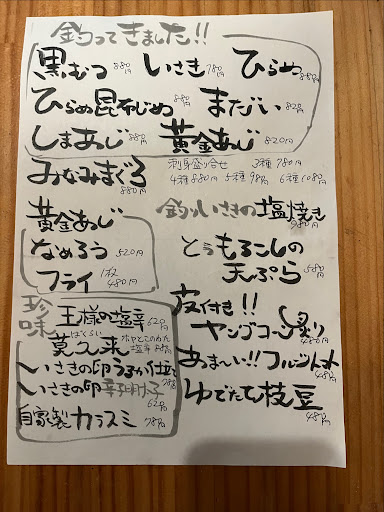 釣ってきました!!
黒むつ 880円 いさき 780円 ひらめ 880円
ひらめ昆布じめ 880円 まだい 820円
しまあじ 880円 黄金あじ 820円
みなみまぐろ 880円
刺身盛り合せ 3種780円
4種880円 5種980円 6種1080円
黄金あじ
なめろう 520円
フライ 1枚 480円
釣りいさきの塩焼き 980円
とうもろこしの
天ぷら 580円
皮付き!!
ヤングコーン炙り 480円
あま〜い!!フルーツトマト 480円
ゆでたて枝豆 480円
珍味
王様の塩辛 620円
ばくらい
莫久来 ホヤとこのわた
塩辛
いさきの卵うま煮仕立て
いさきの卵辛子明太子 620円
自家製カラスミ 780円